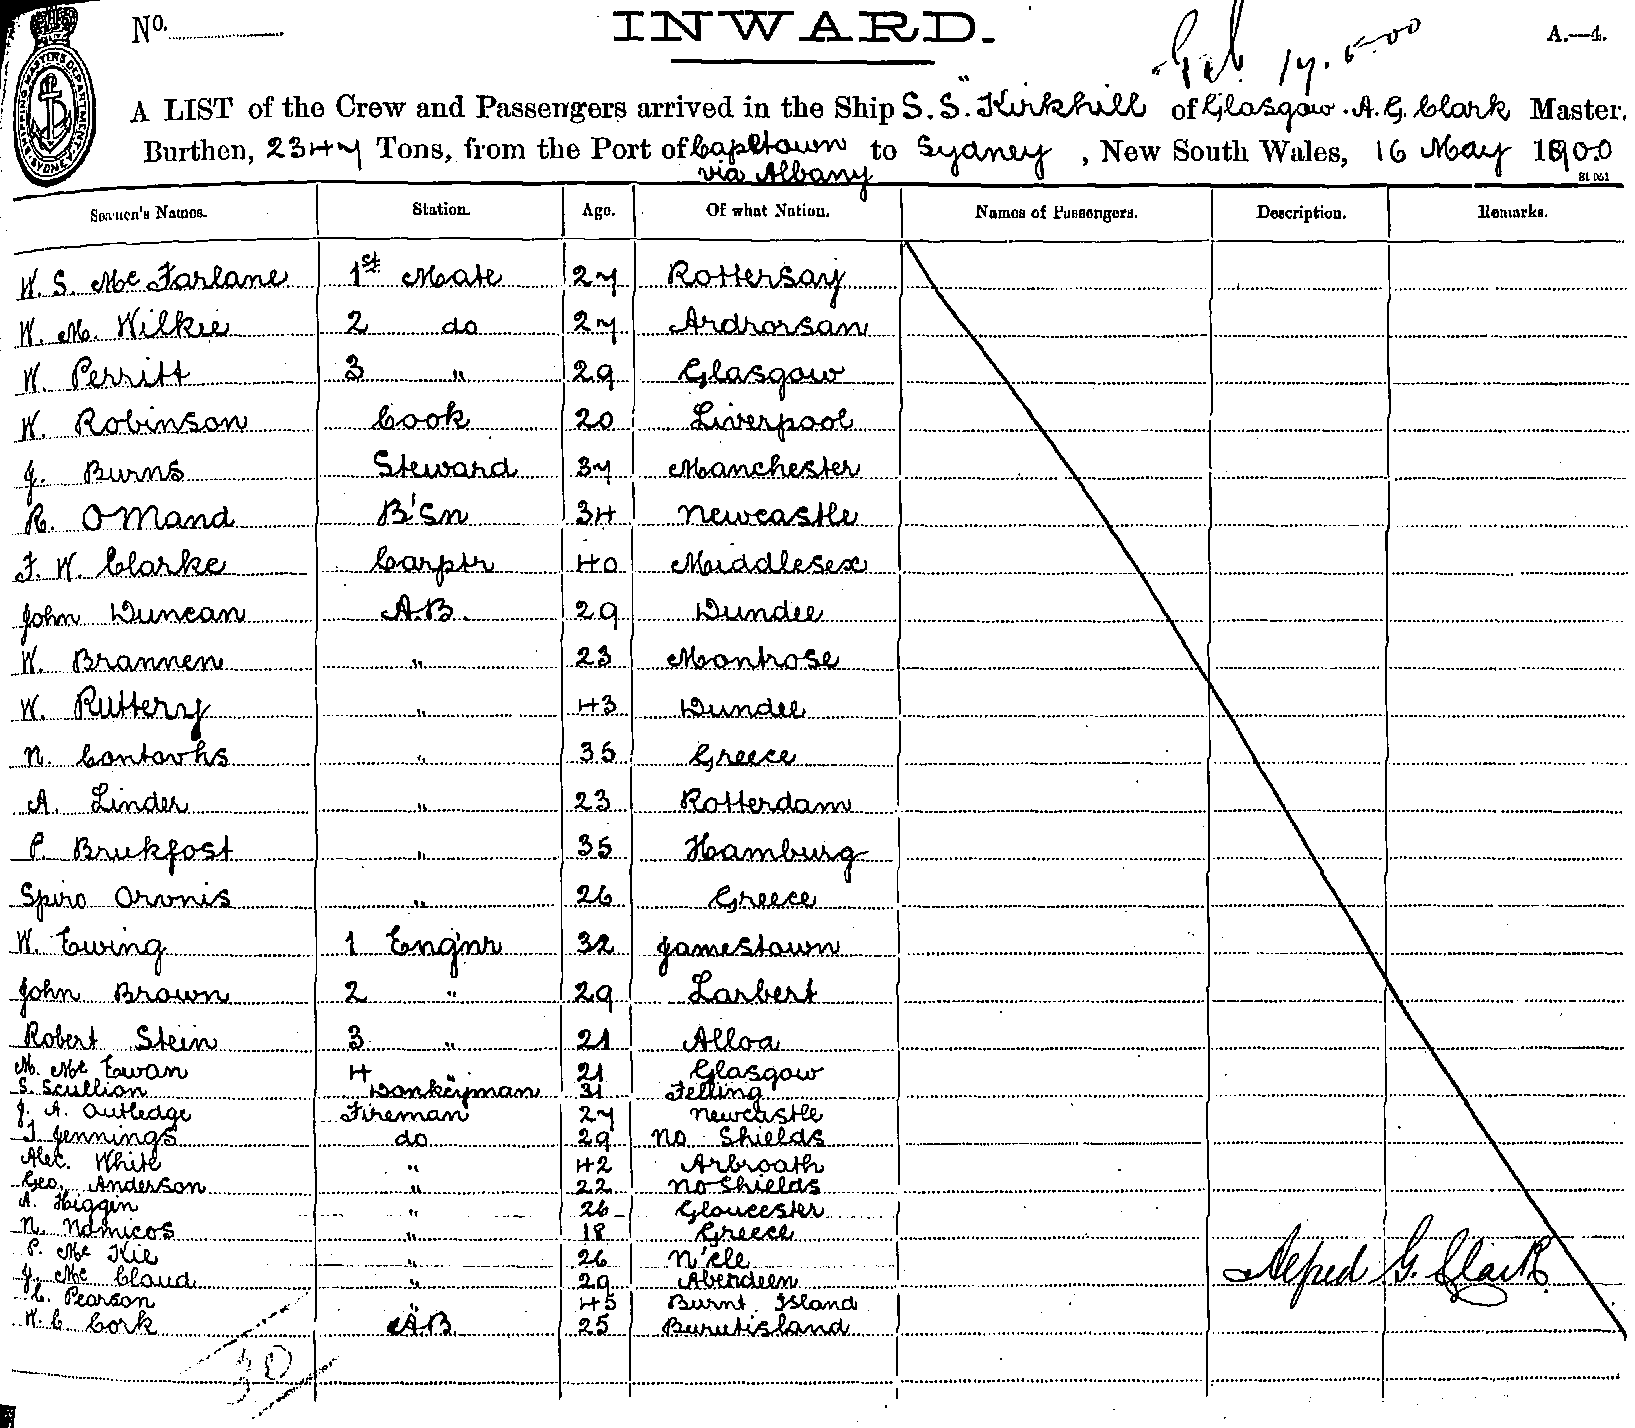 No.
INWARD.
A.—4.
A LIST of the Crew and Passengers arrived in the Ship S.S. "Kirkhill of Glasgow. A. G. Clark Master,
Burthen, 2347 Tons, from the Port of Capetown to Sydney, New South Wales, 16 May 1900
via Albany
Seamen's Names. Station. Age. Of what Nation. Names of Passengers. Description. Remarks.
W. S. Mc Farlane 1st Mate 27 Rottersay
W. M. Wilkie 2 do 27 Ardrorsan
W. Perritt 3 " 29 Glasgow
W. Robinson Cook 20 Liverpool
J. Burns Steward 37 Manchester
R. OMand B'Sn 34 Newcastle
F. W. Clarke Carptr 40 Middlesex
John Duncan A.B. 29 Dundee
W. Brannen " 23 Montrose
W. Ruttery " 43 Dundee
N. Contovhs " 35 Greece
A. Linder " 23 Rotterdam
P. Brukfost " 35 Hamburg
Spiro Orvnis " 26 Greece
W. Ewing 1 Eng'nr 32 Jamestown
John Brown 2 " 29 Larbert
Robert Stein 3 " 21 Alloa
M. Mc Ewan 4 " 21 Glasgow
S. Scullion Donkeyman 31 Felling
J. A. Outledge Fireman 27 Newcastle
T. Jennings do 29 No Shields
Alec. White " 42 Arbroath
Geo. Anderson " 22 No Shields
A. Higgin " 26 Gloucester
N. Nomicos " 18 Greece
P. Mc Kie " 26 N'cle
J. Mc Cloud " 29 Aberdeen
C. Pearson " 45 Burnt Island
W. C. Cork A.B. 25 Burutisland
Alfred G. Clark
30